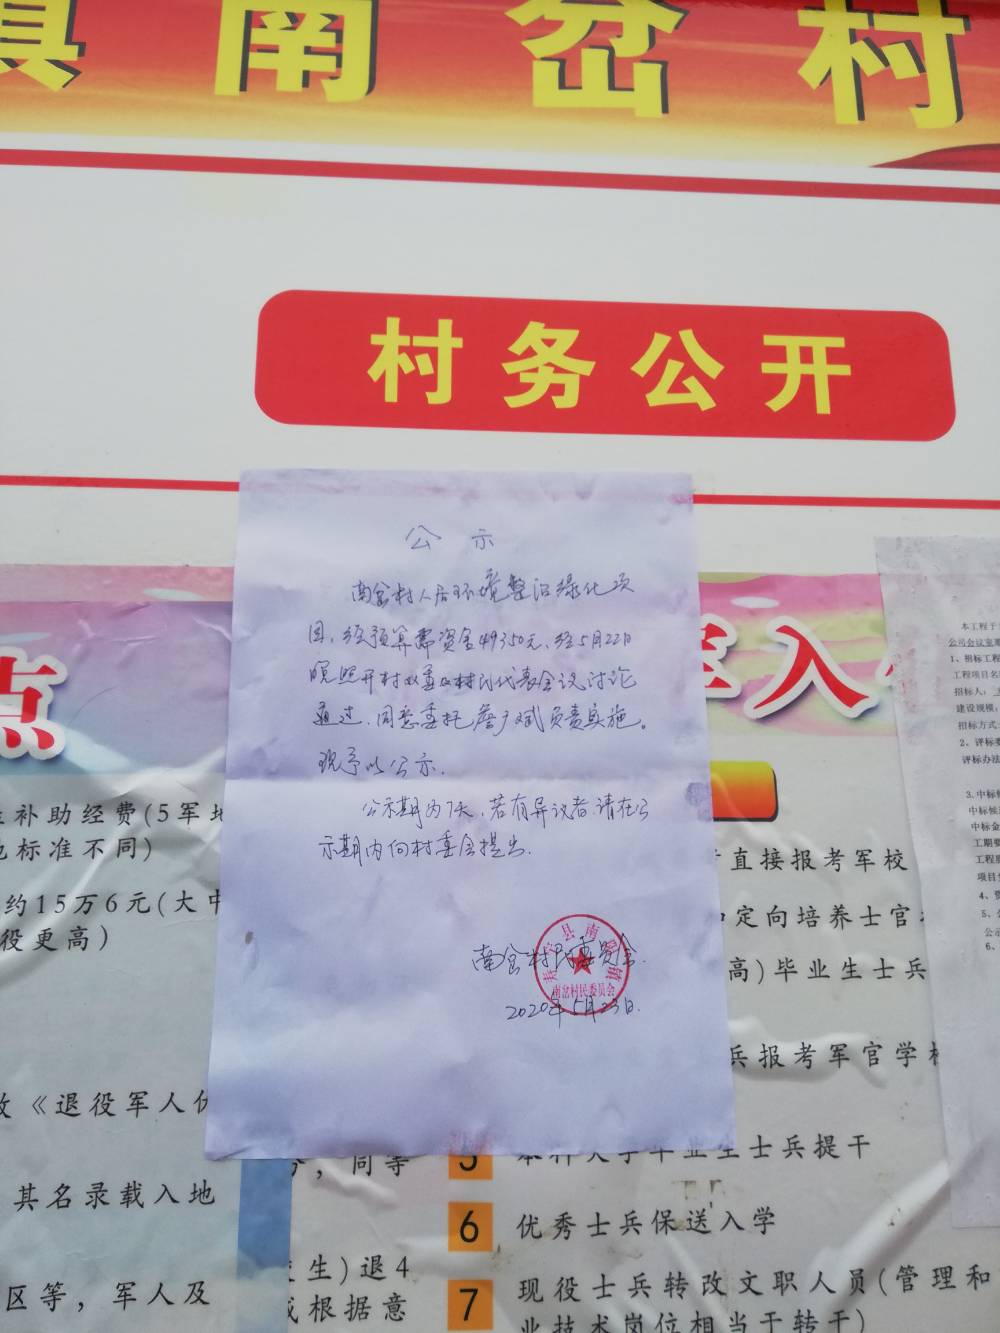 镇南岔村
村务公开
公示
南岔村人居环境整治绿化项
目,经预算需资金49350元,经5月22日
晚照开村两委及村民代表会议讨论
通过,同意委托詹 斌负责实施。
现予以公示.
公示期为7天,若有异议者,请在公
示期内向村委会提出.
南岔村民委员会.
2020年5月23日.
南岔村民委员会
点
军入
补助经费(5军地
标准不同)
约15万6元(大中
役更高)
《退役军人优
其名录载入地
区等,军人及
,同等
生)退4
或根据意
直接报考军校
定向培养士官
高)毕业生士兵
兵报考军官学校
5 本科大学毕业生士兵提干
6 优秀士兵保送入学
7 现役士兵转改文职人员(管理和
业技术岗位相当于转干)
本工程于
公司会议室
1、招标工程
工程项目名
招标人:
建设规模:
招标方式:
2、评标
评标办法
3.中标候
中标候
中标金
工期要
工程
项目
4、
5、
公示
6、